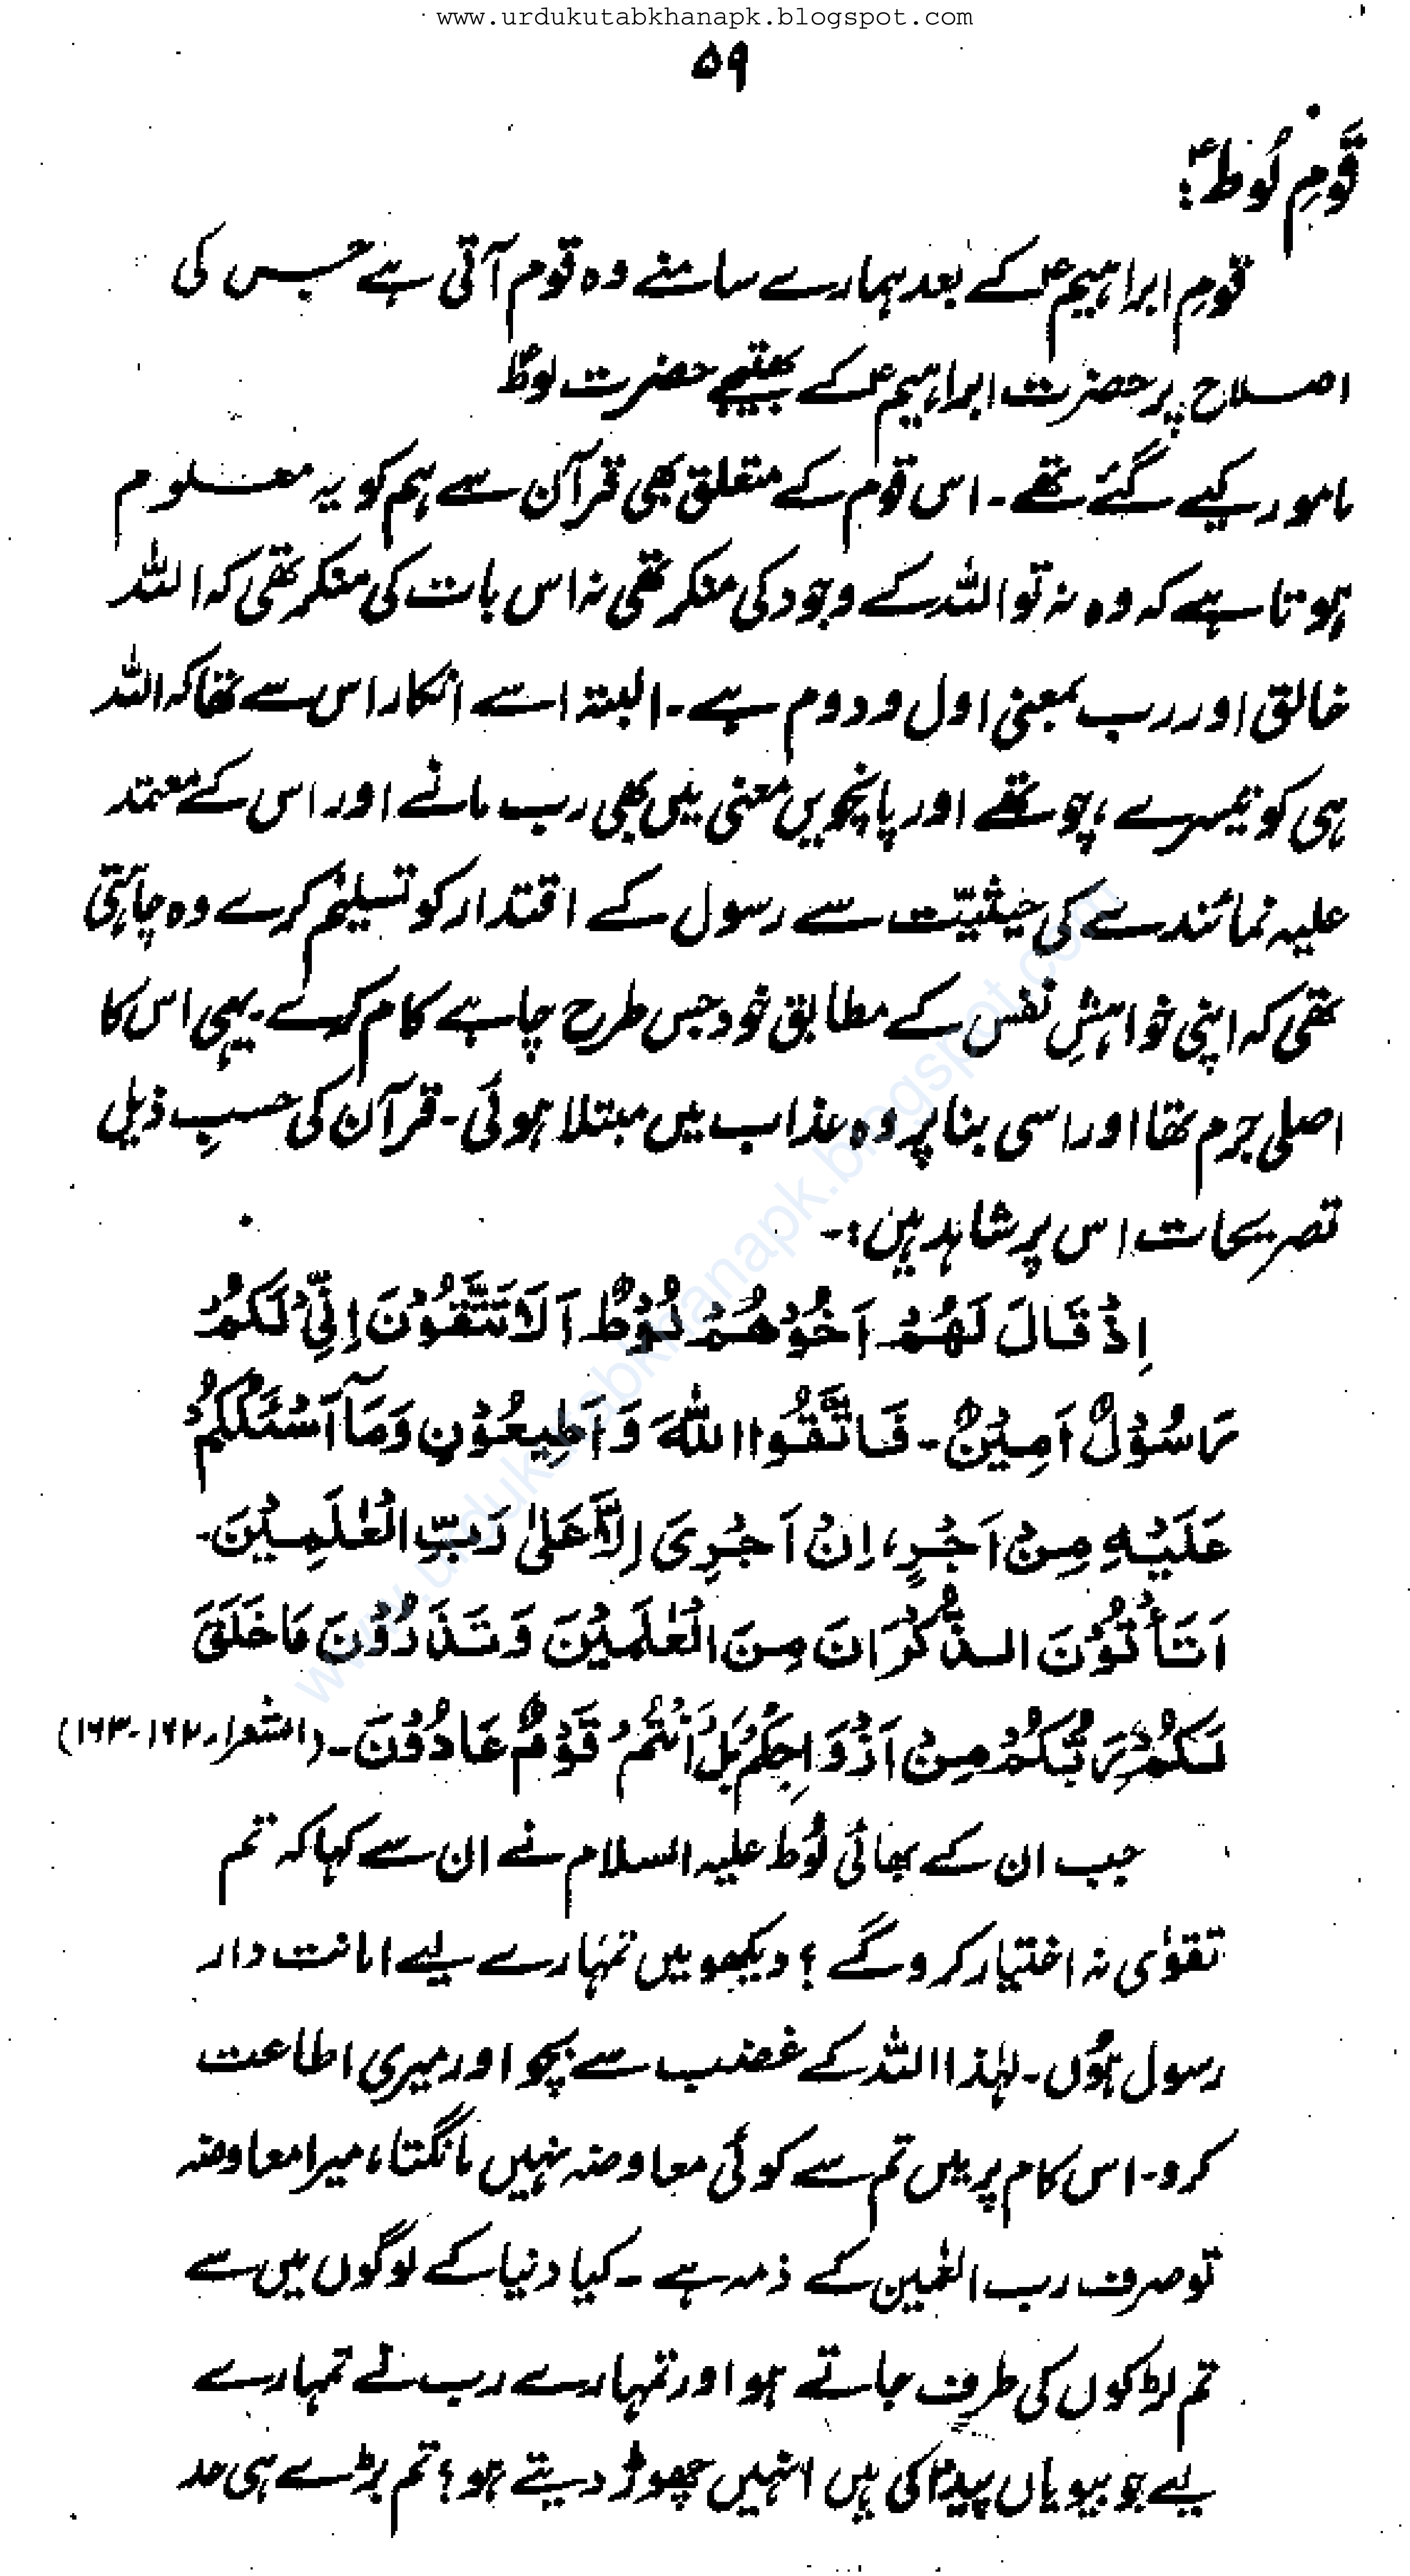 www.urdukutabkhanapk.blogspot.com
۵۹
قَومِ لُوطؑ:
قومِ ابراہیمؑ کے بعد ہمارے سامنے وہ قوم آتی ہے جس کی
اصلاح پر حضرت ابراہیمؑ کے بھتیجے حضرت لوطؑ
مامور کیے گئے تھے۔ اس قوم کے متعلق بھی قرآن سے ہم کو یہ معلوم
ہوتا ہے کہ وہ نہ تو اللہ کے وجود کی منکر تھی نہ اس بات کی منکر تھی کہ اللہ
خالق اور رب بمعنی اول و دوم ہے۔ البتہ اسے انکار اس سے تھا کہ اللہ
ہی کو تیسرے، چوتھے اور پانچویں معنی میں بھی رب مانے اور اس کے معتمد
علیہ نمائندے کی حیثیّت سے رسول کے اقتدار کو تسلیم کرے وہ چاہتی
تھی کہ اپنی خواہشِ نفس کے مطابق خود جس طرح چاہے کام کرے۔ یہی اس کا
اصلی جرم تھا اور اسی بنا پر وہ عذاب میں مبتلا ہوئی۔ قرآن کی حسبِ ذیل
تصریحات اس پر شاہد ہیں:۔
اِذْ قَالَ لَهُمْ اَخُوْهُمْ لُوْطٌ اَلَا تَتَّقُوْنَ اِنِّیْ لَكُمْ
رَسُوْلٌ اَمِیْنٌ۔ فَاتَّقُوا اللّٰهَ وَ اَطِیعُوْنِ وَمَآ اَسْئَلُكُمْ
عَلَیْهِ مِنْ اَجْرٍ، اِنْ اَجْرِیَ اِلَّا عَلیٰ رَبِّ الْعٰلَمِیْنَ۔
اَتَأْتُوْنَ الذُّكْرَانَ مِنَ الْعٰلَمِیْنَ وَ تَذَرُوْنَ مَا خَلَقَ
لَكُمْ رَبُّكُمْ مِنْ اَزْوَاجِكُمْ بَلْ اَنْتُمْ قَوْمٌ عَادُوْنَ۔ (الشعراء۔ ۱۶۲-۱۶۳)
جب ان کے بھائی لُوط علیہ السلام نے ان سے کہا کہ تم
تقوٰی نہ اختیار کرو گے؟ دیکھو میں تمہارے لیے امانت دار
رسول ہُوں۔ لہٰذا اللہ کے غضب سے بچو اور میری اطاعت
کرو۔ اس کام پر میں تم سے کوئی معاوضہ نہیں مانگتا، میرا معاوضہ
تو صرف رب العٰلمین کے ذمہ ہے۔ کیا دنیا کے لوگوں میں سے
تم لڑکوں کی طرف جاتے ہو اور تمہارے رب نے تمہارے
لیے جو بیویاں پیدا کی ہیں انہیں چھوڑ دیتے ہو؟ تم بڑے ہی حد
www.urdukutabkhanapk.blogspot.com